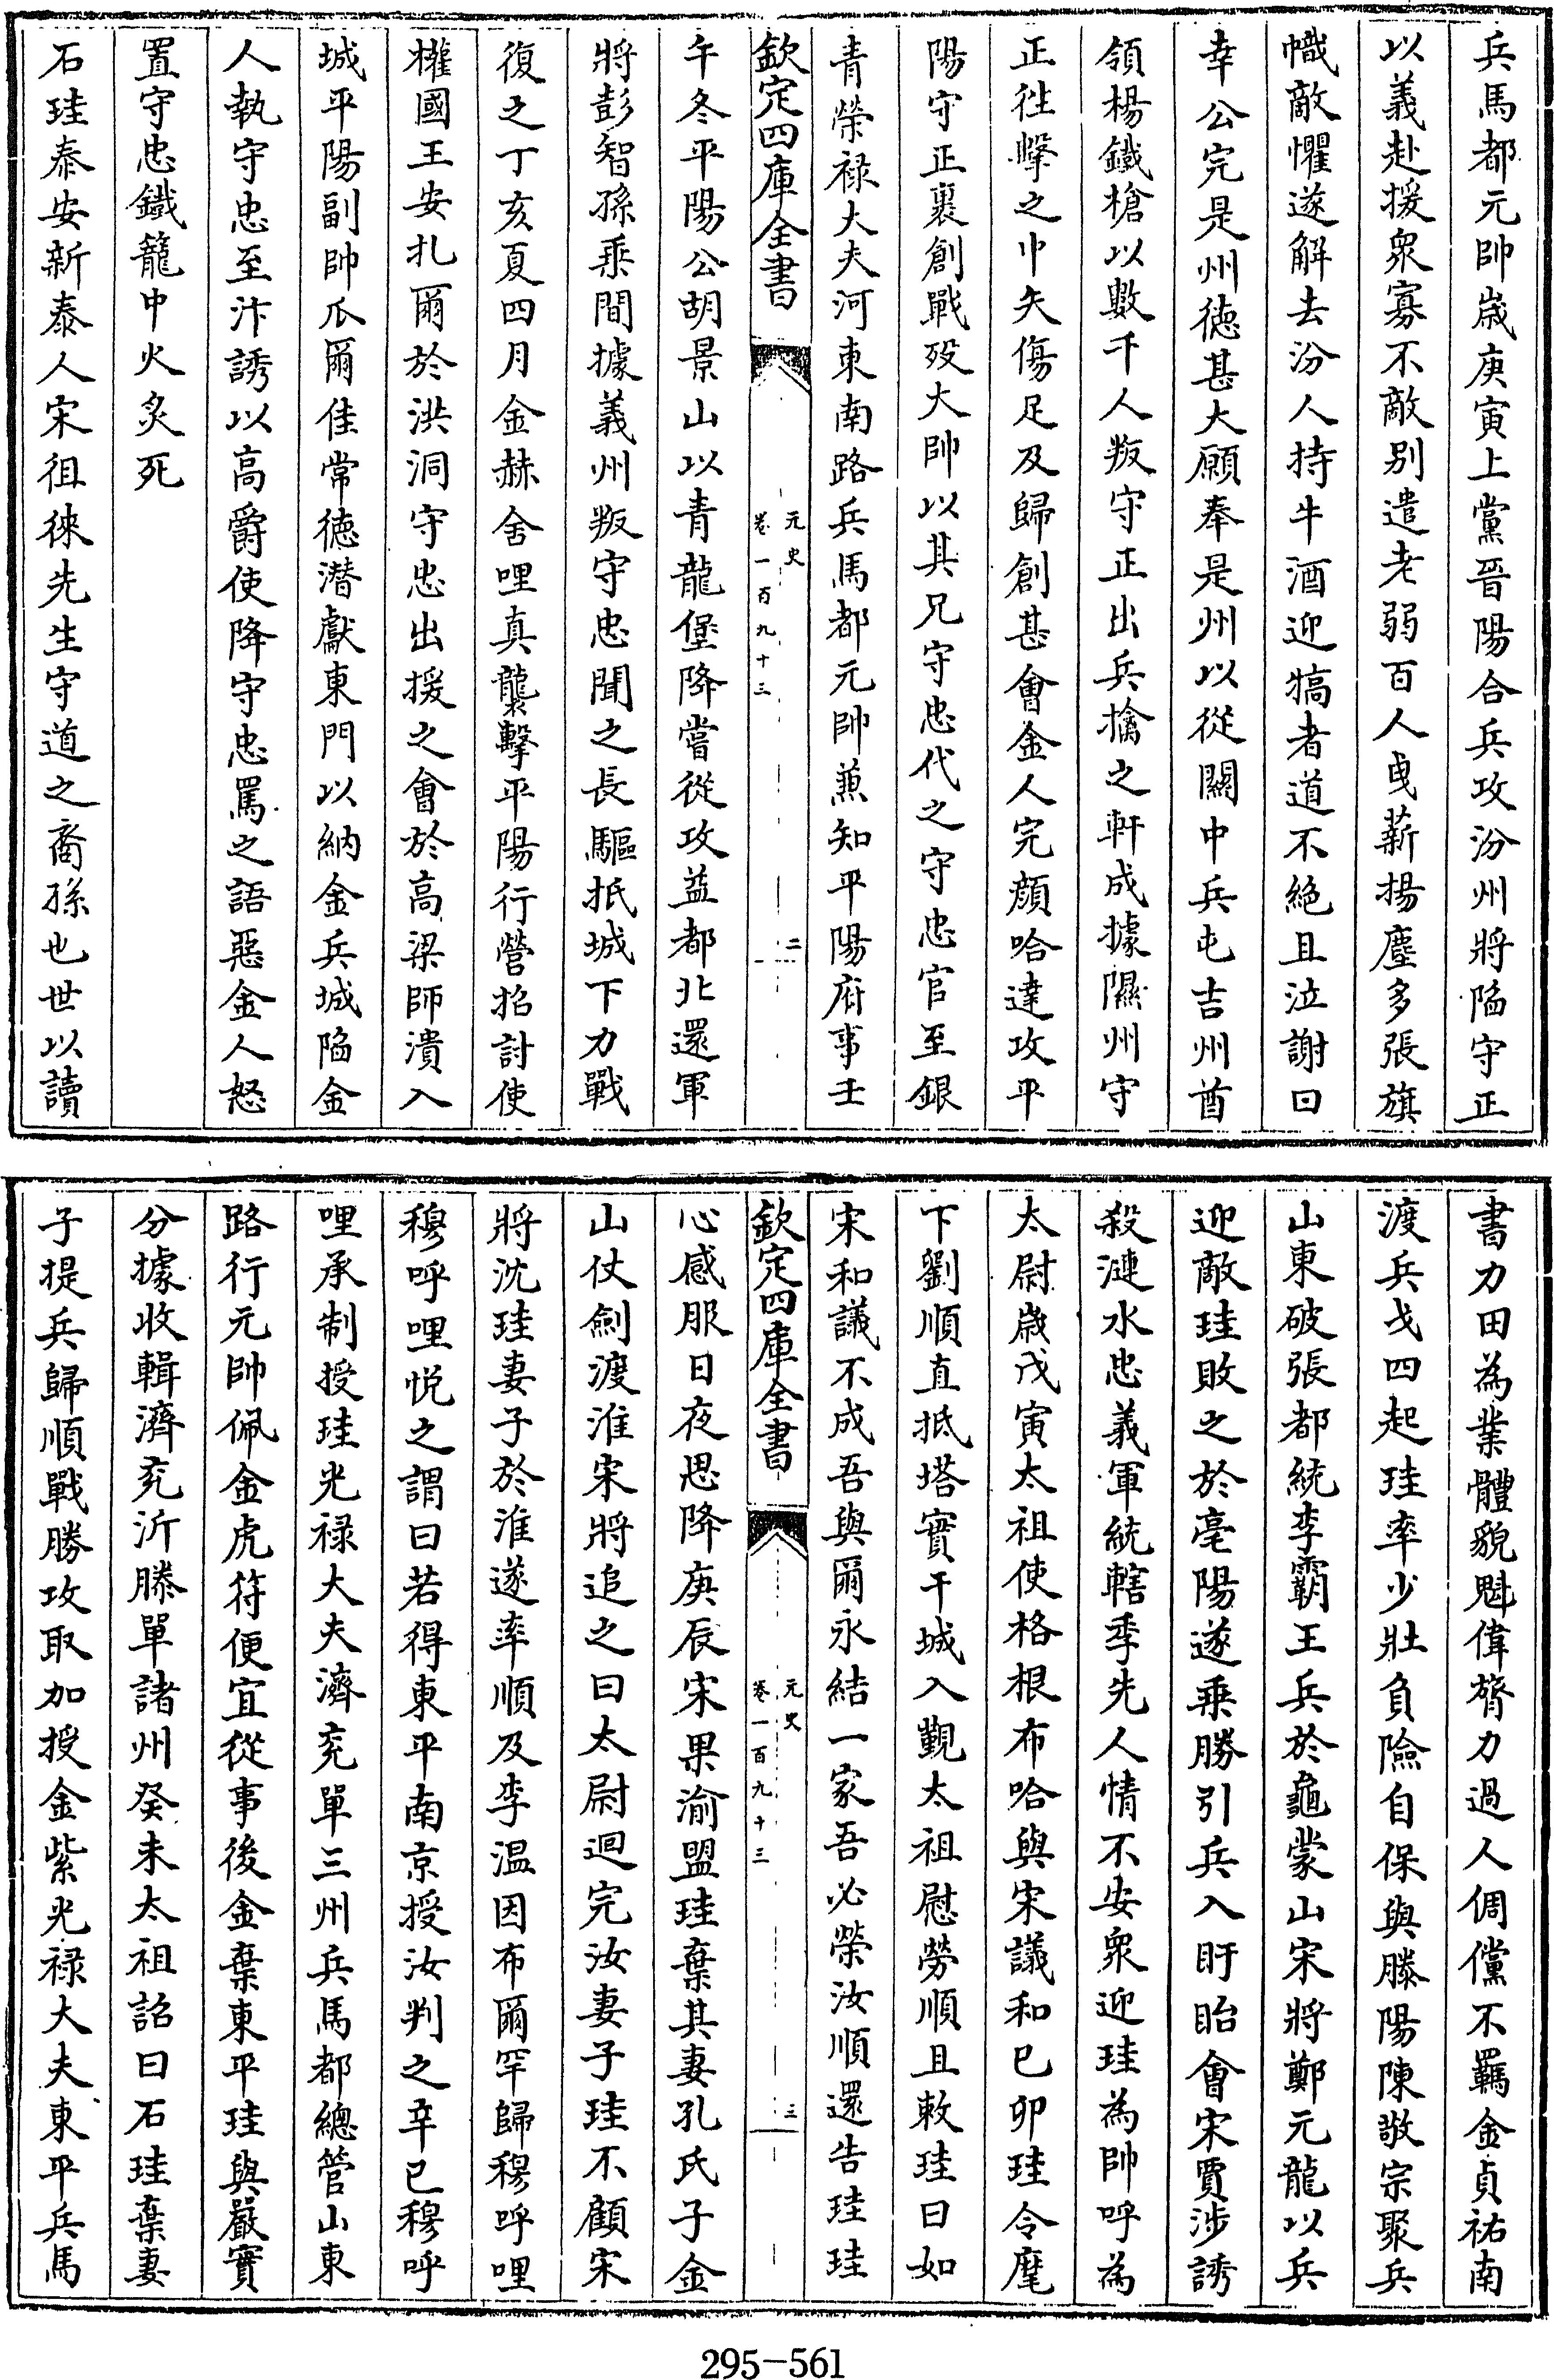 兵馬都元帥歳庚寅上黨晉陽合兵攻汾州將陷守正
以義赴援衆寡不敵别遣老弱百人曵薪揚塵多張旗
幟敵懼遂解去汾人持牛酒迎犒者道不絶且泣謝曰
幸公完是州徳甚大願奉是州以從關中兵屯吉州酋
領楊鐵槍以數千人叛守正出兵擒之軒成據隰州守
正往擊之中矢傷足及歸創甚會金人完顔哈達攻平
陽守正裹創戰殁大帥以其兄守忠代之守忠官至銀
青榮禄大夫河東南路兵馬都元帥兼知平陽府事壬
欽定四庫全書
元史
卷一百九十三
二
午冬平陽公胡景山以青龍堡降嘗從攻益都北還軍
將彭智孫乘間據義州叛守忠聞之長驅抵城下力戰
復之丁亥夏四月金赫舍哩真襲擊平陽行營招討使
權國王安扎爾於洪洞守忠出援之會於高梁師潰入
城平陽副帥爪爾佳常徳潜獻東門以納金兵城陷金
人執守忠至汴誘以高爵使降守忠罵之語惡金人怒
置守忠鐵籠中火炙死
石珪泰安新泰人宋徂徠先生守道之裔孫也世以讀
書力田為業體貌魁偉膂力過人倜儻不羈金貞祐南
渡兵戈四起珪率少壯負險自保與滕陽陳敬宗聚兵
山東破張都統李霸王兵於龜蒙山宋將鄭元龍以兵
迎敵珪敗之於亳陽遂乘勝引兵入盱眙會宋賈涉誘
殺漣水忠義軍統轄季先人情不安衆迎珪為帥呼為
太尉歳戊寅太祖使格根布哈與宋議和已卯珪令麾
下劉順直抵塔實干城入覲太祖慰勞順且敕珪曰如
宋和議不成吾與爾永結一家吾必榮汝順還告珪珪
欽定四庫全書
元史
卷一百九十三
三
心感服日夜思降庚辰宋果渝盟珪棄其妻孔氏子金
山仗劍渡淮宋將追之曰太尉迴完汝妻子珪不顧宋
將沈珪妻子於淮遂率順及李温因布爾罕歸穆呼哩
穆呼哩悦之謂曰若得東平南京授汝判之辛已穆呼
哩承制授珪光禄大夫濟兗單三州兵馬都總管山東
路行元帥佩金虎符便宜從事後金棄東平珪與嚴實
分據收輯濟兗沂滕單諸州癸未太祖詔曰石珪棄妻
子提兵歸順戰勝攻取加授金紫光禄大夫東平兵馬
295-561